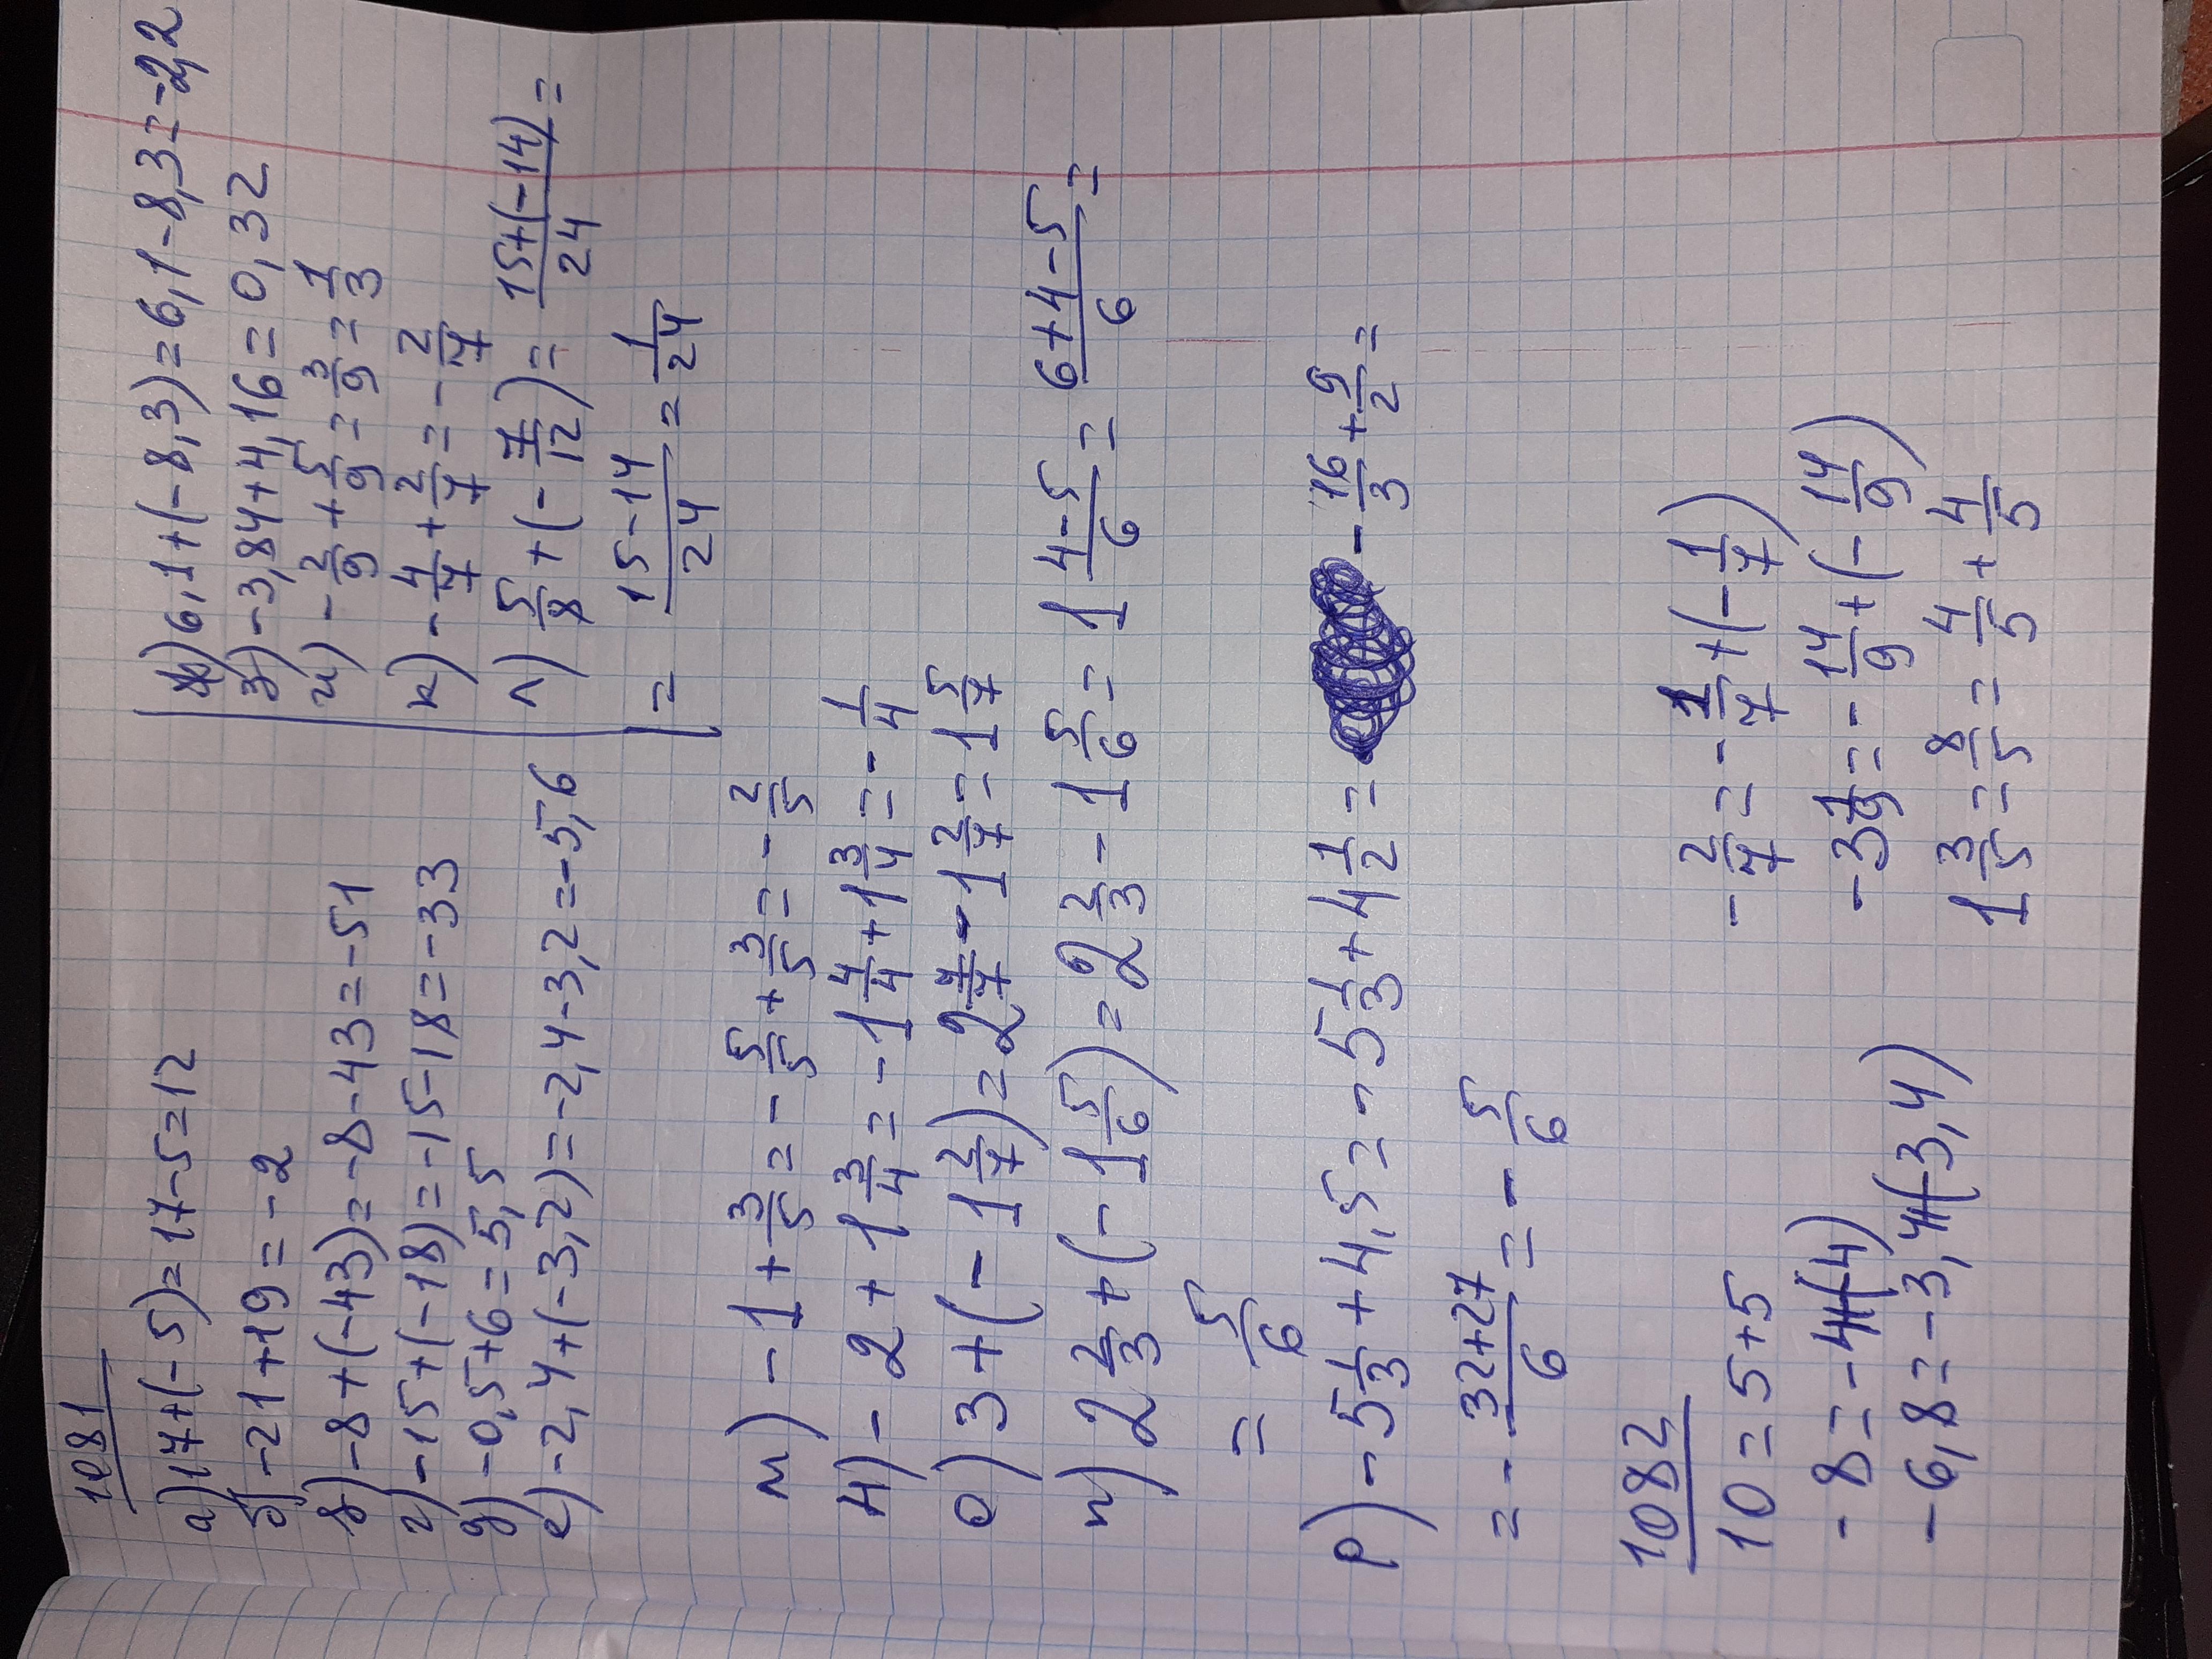 1081
а) 17+(-5)=17-5=12
б) -21+19=-2
в) -8+(-43)=-8-43=-51
г) -15+(-18)=-15-18=-33
д) -0,5+6=5,5
е) -2,4+(-3,2)=-2,4-3,2=-5,6
ж) 6,1+(-8,3)=6,1-8,3=-2,2
з) -3,84+4,16=0,32
и) -2/9+5/9=3/9=1/3
к) -4/7+2/7=-2/7
л) 5/8+(-7/12)=15+(-14)/24=
=15-14/24=1/24
м) -1+3/5=-5/5+3/5=-2/5
н) -2+1 3/4=-1 4/4+1 3/4=-1/4
о) 3+(-1 2/7)=2 7/7-1 2/7=1 5/7
п) 2 2/3+(-1 5/6)=2 2/3-1 5/6=1 4-5/6=6+4-5/6=
=5/6
р) -5 1/3+4,5=-5 1/3+4 1/2=-16/3+9/2=
=-32+27/6=-5/6
1082
10=5+5
-8=-4+(-4)
-6,8=-3,4+(-3,4)
-2/7=-1/7+(-1/7)
-3 1/9=-14/9+(-14/9)
1 3/5=8/5=4/5+4/5